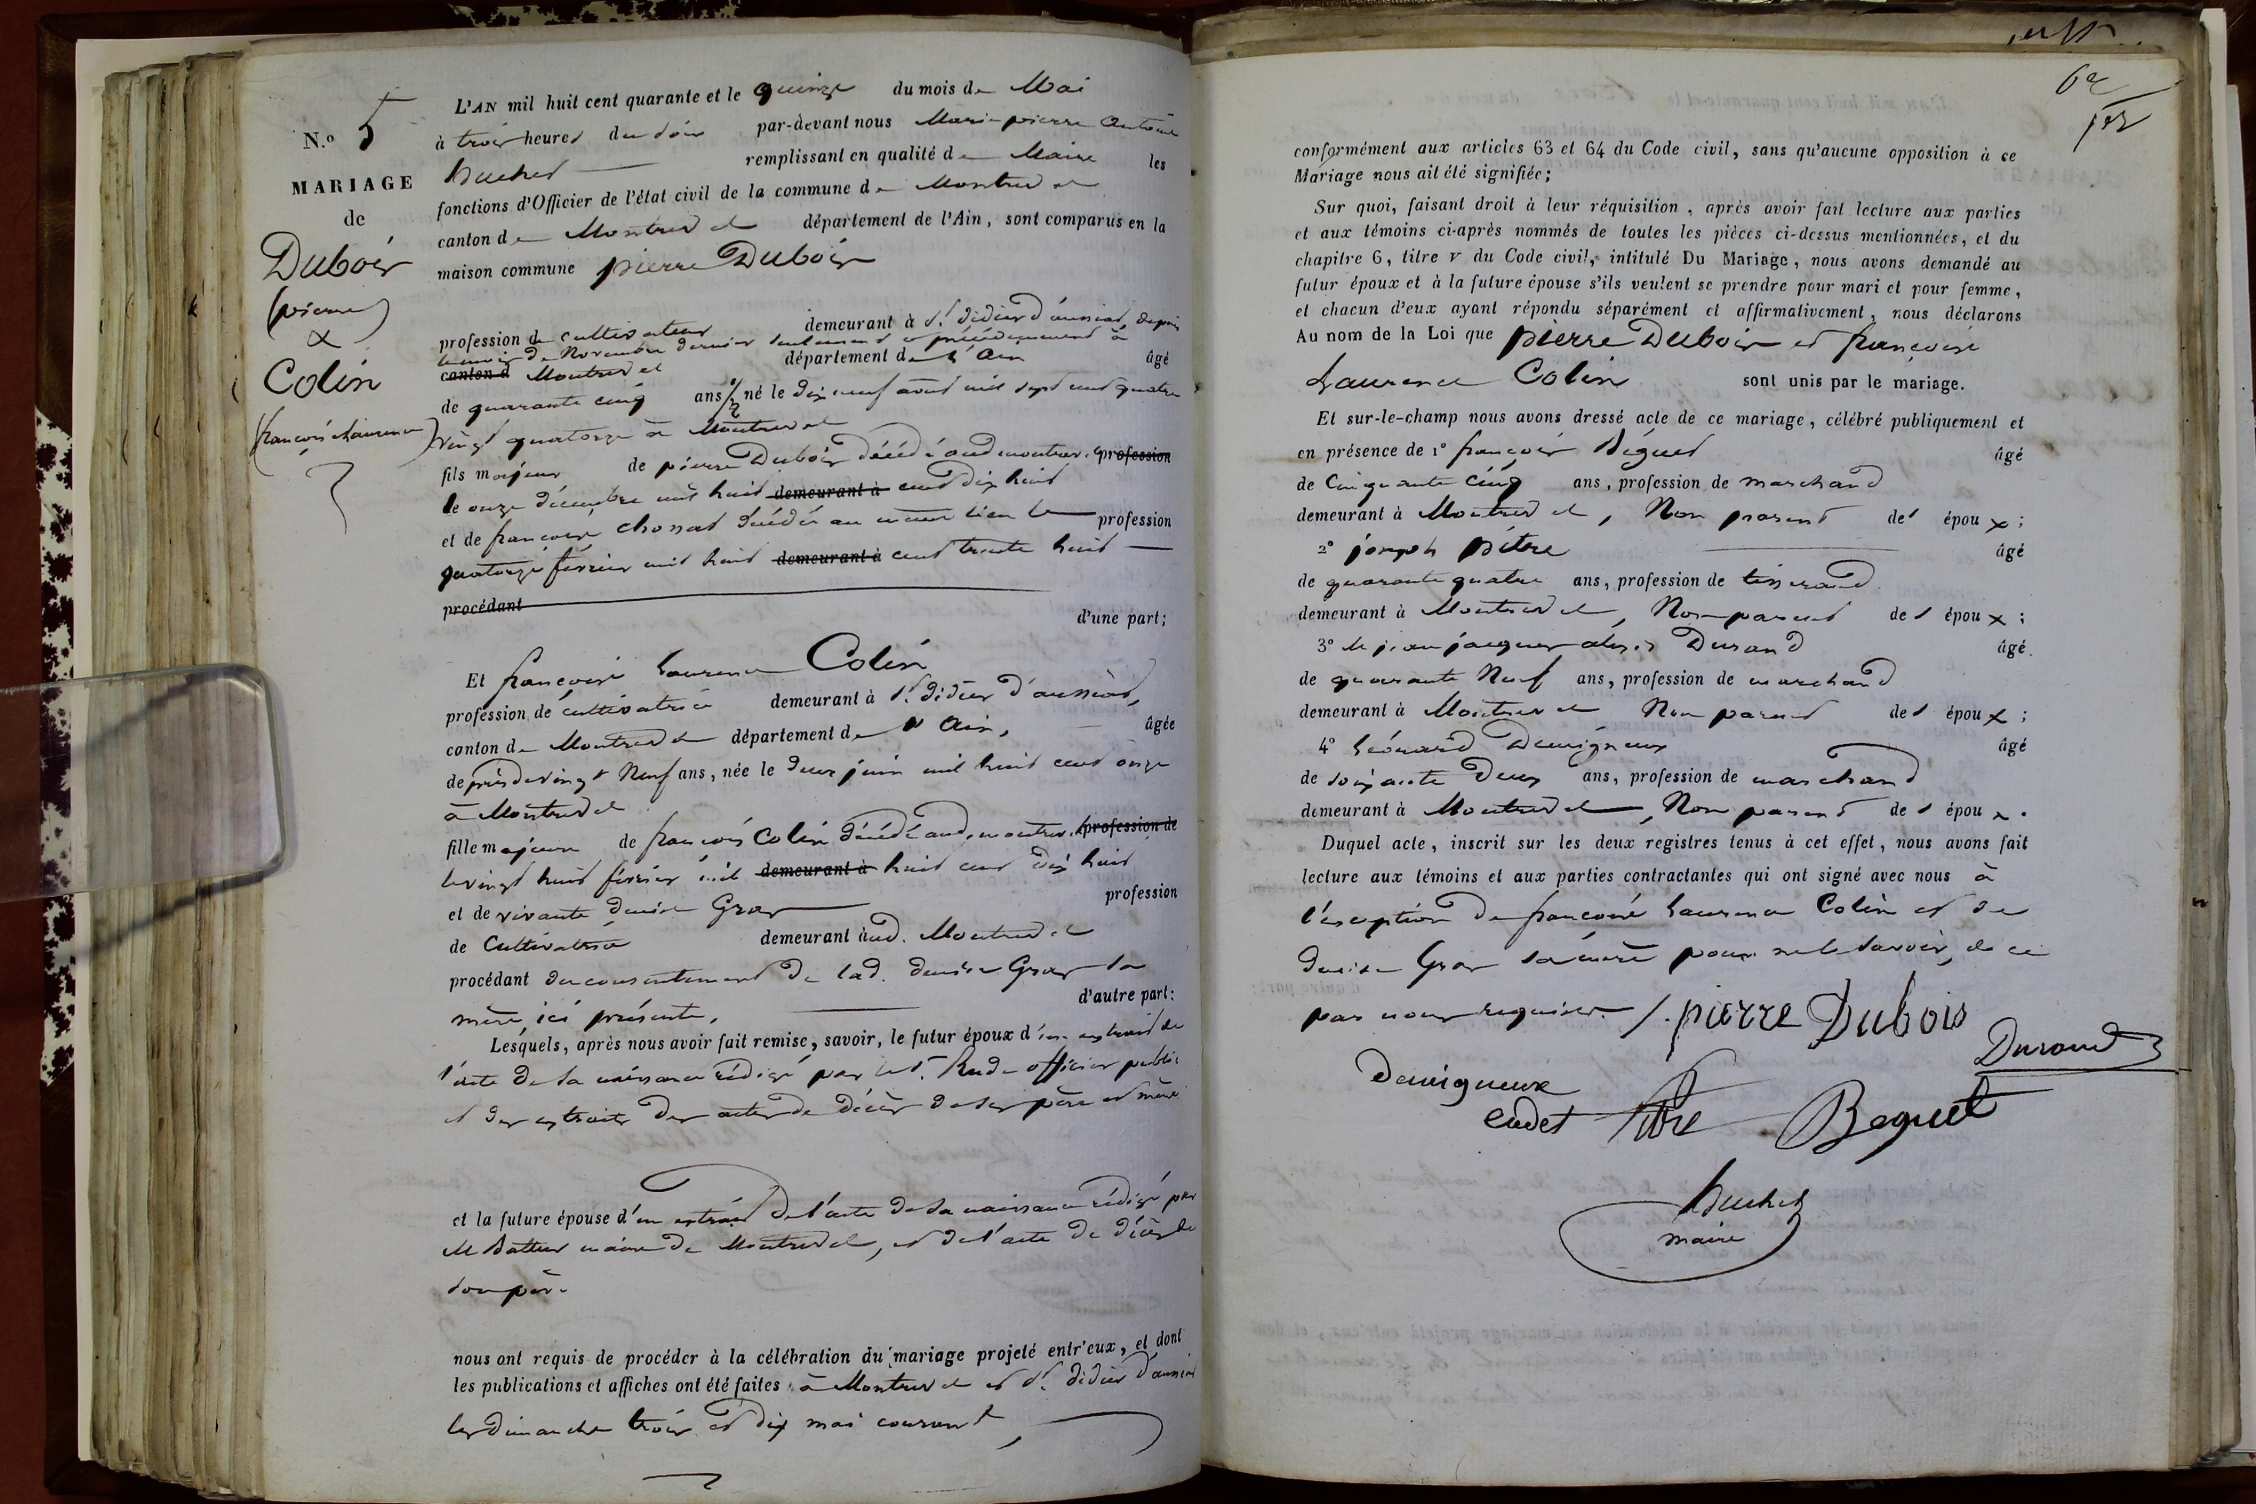 N.o 5
MARIAGE
de
Dubois
(pierre)
&
Colin
(françoise Laurence)
L'AN mil huit cent quarante et le quinze du mois de Mai
à trois heures du soir par-devant nous Marie pierre Antoine
Buchet remplissant en qualité de Maire les
fonctions d'Officier de l'état civil de la commune de Montrevel
canton de Montrevel département de l'Ain, sont comparus en la
maison commune pierre Dubois
profession de cultivateur demeurant à St. didier d'aussiat, depuis
le mois de Novembre dernier seulement et précédemment à
canton d Montrevel département de l'Ain âgé
de quarante cinq ans 1/2 né le dix neuf août mil sept cent quatre
vingt quatorze à Montrevel
fils majeur de pierre Dubois décédé aud. montrevel profession
le onze décembre mil huit demeurant à cent dix huit
et de françoise chonat décédée au même lieu le profession
quatorze février mil huit demeurant à cent trente huit
procédant
d'une part;
Et françoise Laurence Colin
profession de cultivatrice demeurant à St. didier d'aussiat,
canton de Montrevel département de l'Ain, âgée
de près de vingt Neuf ans, née le deux juin mil huit cent onze
à Montrevel
fille majeure de françois Colin décédé aud. montrevel profession de
le vingt huit février mil demeurant à huit cent dix huit
et de vivante denise Gras profession
de Cultivatrice demeurant aud. Montrevel
procédant du consentement de lad. denise Gras sa
mère, ici présente, d'autre part:
Lesquels, après nous avoir fait remise, savoir, le futur époux d'un extrait de
l'acte de sa naissance rédigé par le Sr. Rude officier public
et des extraits des actes de décès de ses père et mère
et la future épouse d'un extrait de l'acte de sa naissance rédigé par
M Battur maire de Montrevel, et de l'acte de décès de
son père
nous ont requis de procéder à la célébration du mariage projeté entr'eux, et dont
les publications et affiches ont été faites à Montrevel et St. didier d'aussiat
les dimanche trois et dix mai courant,
62
conformément aux articles 63 et 64 du Code civil, sans qu'aucune opposition à ce
Mariage nous ait été signifiée;
Sur quoi, faisant droit à leur réquisition, après avoir fait lecture aux parties
et aux témoins ci-après nommés de toutes les pièces ci-dessus mentionnées, et du
chapitre 6, titre v du Code civil, intitulé Du Mariage, nous avons demandé au
futur époux et à la future épouse s'ils veulent se prendre pour mari et pour femme,
et chacun d'eux ayant répondu séparément et affirmativement, nous déclarons
Au nom de la Loi que pierre Dubois et françoise
Laurence Colin sont unis par le mariage.
Et sur-le-champ nous avons dressé acte de ce mariage, célébré publiquement et
en présence de 1° françois Béguet âgé
de Cinquante cinq ans, profession de marchand
demeurant à Montrevel, Non parent des époux;
2° joseph pitre âgé
de quarante quatre ans, profession de tisserand
demeurant à Montrevel, Non parent des époux;
3° de jean jacques alexis Durand âgé
de quarante Neuf ans, profession de marchand
demeurant à Montrevel Non parent des époux;
4° Léonard Devigneux âgé
de soixante Deux ans, profession de marchand
demeurant à Montrevel, Non parent des époux.
Duquel acte, inscrit sur les deux registres tenus à cet effet, nous avons fait
lecture aux témoins et aux parties contractantes qui ont signé avec nous à
l'exception de françoise Laurence Colin et de
denise Gras sa mère pour ne le savoir, de ce
par nous requises. pierre Dubois
Durand
Devigneux
cadet Pitre Beguet
Buchet
maire